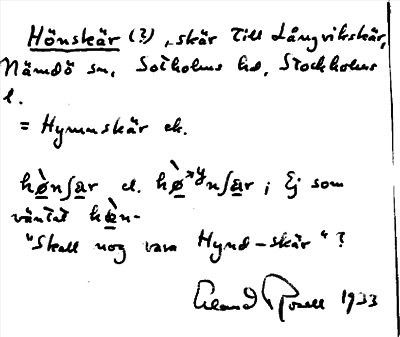 Hönskär (?), skär till Långvikskär,
Nämdö sn, Sotholms hd, Stockholms
l.
= Hymnskär ek.
hø̀nʃar el. hø̀ˣʸnʃar ; Ej som
väntat hɵ̀n-
"Skall nog vara Hynd-skär" ?
Erland Rosell 1933